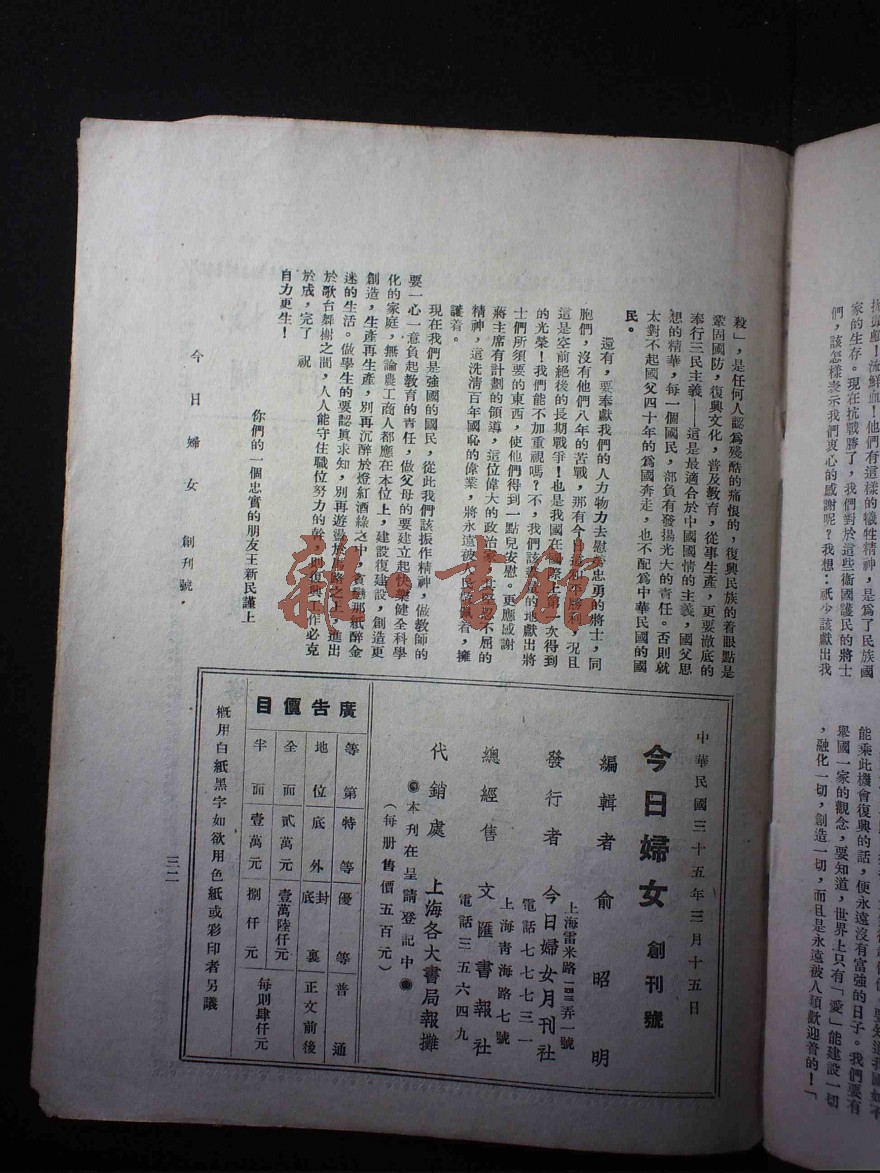 抗頭顱！流鮮血！他們有這樣的犧牲精神，是爲了民族國
家的生存。現在抗戰勝了，我們對於這些衞國護民的將士
們，該怎樣表示我們衷心的感謝呢？我想：祇少該獻出我
能乘此機會復興的話，便永遠沒有富強的日子。我們要有
舉國一家的觀念，要知道，世界上只有「愛」能建設一切
，融化一切，創造一切，而且是永遠被人類歡迎着的！「
殺」，是任何人認爲殘酷的痛恨的，復興民族的着眼點是
鞏固國防，復興文化，普及教育，從事生產，更要徹底的
奉行三民主義——這是最適合於中國國情的主義，國父思
想的精華，每一個國民，部負有發揚光大的責任。否則就
太對不起國父四十年的爲國奔走，也不配爲中華民國的國
民。
還有，要奉獻我們的人力物力去慰勞忠勇的將士，同
胞們，沒有他們八年的苦戰，那有今日這和平勝利，况且
這是空前絕後的長期戰爭！也是我國在國際上第一次得到
的光榮！我們能不加重視嗎？不，我們該書店的地獻出將
士們所須要的東西，使他們得到一點兒安慰。更應感謝
蔣主席有計劃的領導，這位偉大的政治家，堅忍不屈的
精神，這洗清百年國恥的偉業，將永遠被人民敬佩着，擁
護着。
現在我們是強國的國民，從此我們該振作精神，做教師的
要一心一意負起教育的責任，做父母的要建立起快樂健全科學
化的家庭，無論農工商人都應在本位上，建設復建設，創造更
創造，生產再生產，別再沉醉於燈紅酒綠之中，貪戀那紙醉金
迷的生活。做學生的要認眞求知，別再遊蕩於馬路之上，進出
於歌台舞榭之間，人人能守住職位努力的幹，則復興工作必克
於成，完了　祝
自力更生！
你們的一個忠實的朋友王新民謹上
今日婦女　創刊號，
三二
中華民國三十五年三月十五日
今日婦女　創刊號
編輯者　俞昭明
上海雷米路一四三弄一號
發行者　今日婦女月刊社
電話七七七三一
上海靑海路七號
總經售　文匯書報社
電話三五六四九
代銷處　上海各大書局報攤
本刊在呈請登記中
（每册售價五百元）
廣告價目
等第　特等　優等　普通
地位　底外　封底裏　正文前後
全面　貳萬元　壹萬陸仟元
半面　壹萬元　捌仟元　每則肆仟元
概用白紙黑字如欲用色紙或彩印者另議